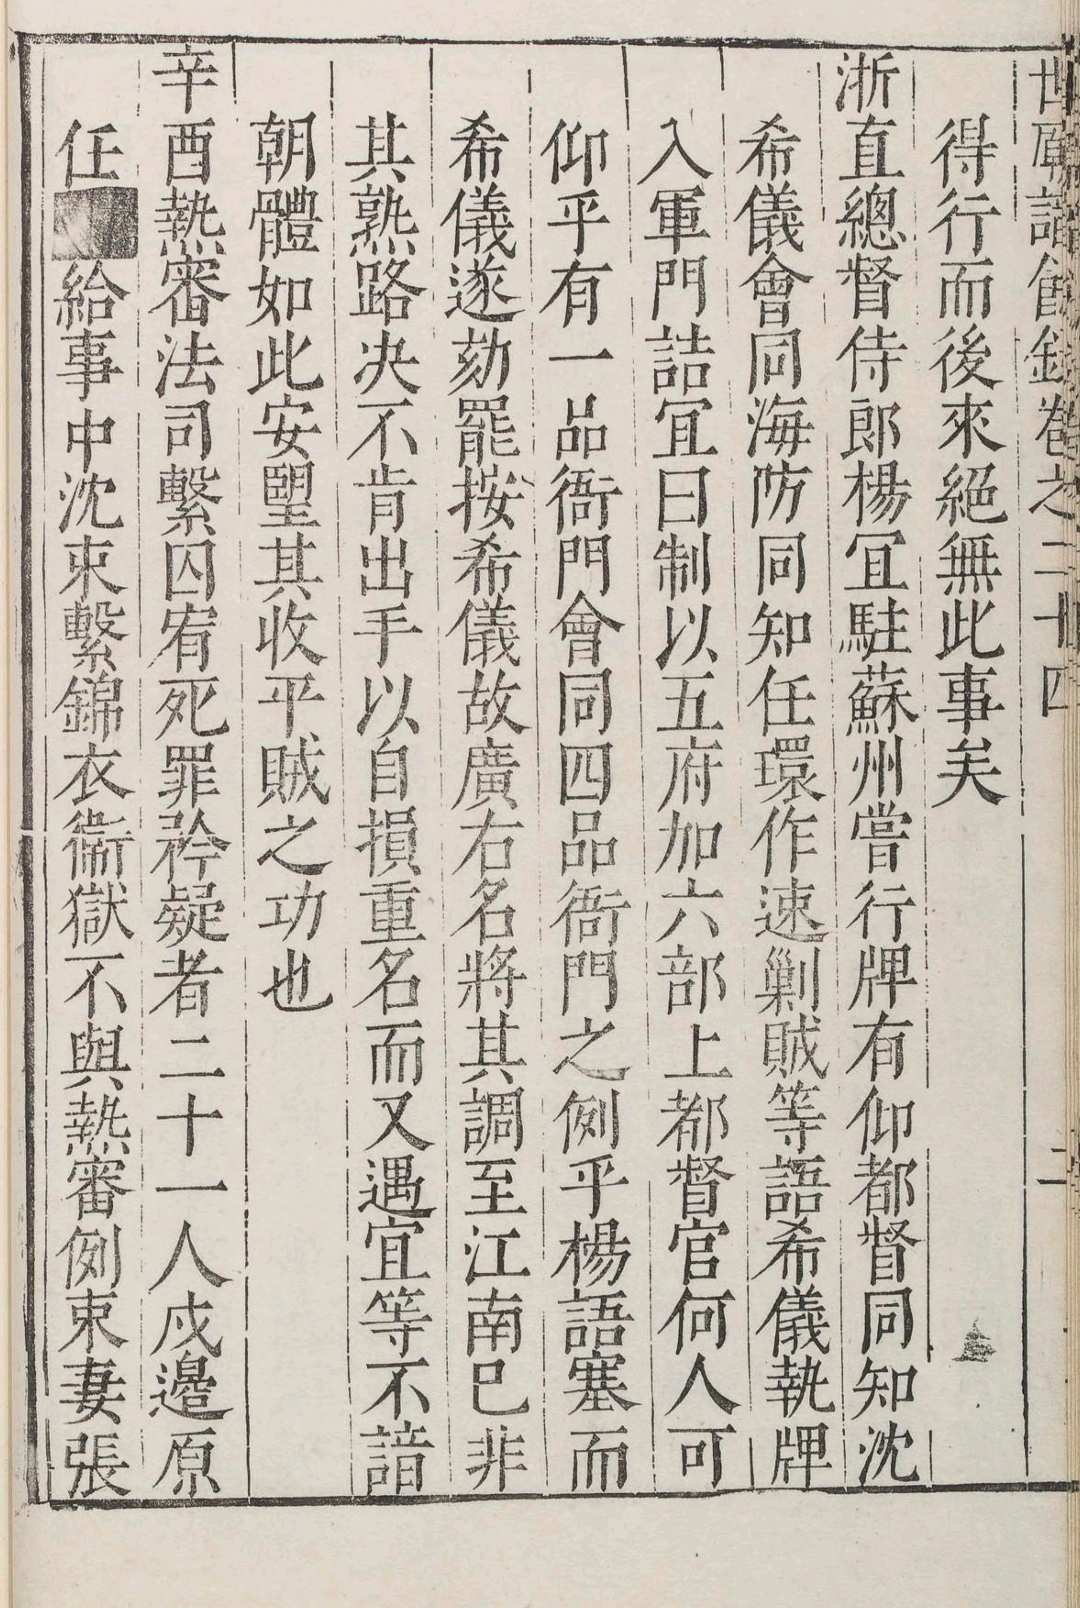 世廟識餘錄卷之二十四 二
得行而後來絕無此事矣
浙直總督侍郎楊宜駐蘇州嘗行牌有仰都督同知沈
希儀會同海防同知任環作速剿賊等語希儀執牌
入軍門詰宜曰制以五府加六部上都督官何人可
仰乎有一品衙門會同四品衙門之例乎楊語塞而
希儀遂劾罷按希儀故廣右名將其調至江南已非
其熟路决不肯出手以自損重名而又遇宜等不諳
朝體如此安望其收平賊之功也
辛酉熱審法司繫囚宥死罪矜疑者二十一人戍邊原
任給事中沈束繫錦衣衞獄不與熱審例束妻張